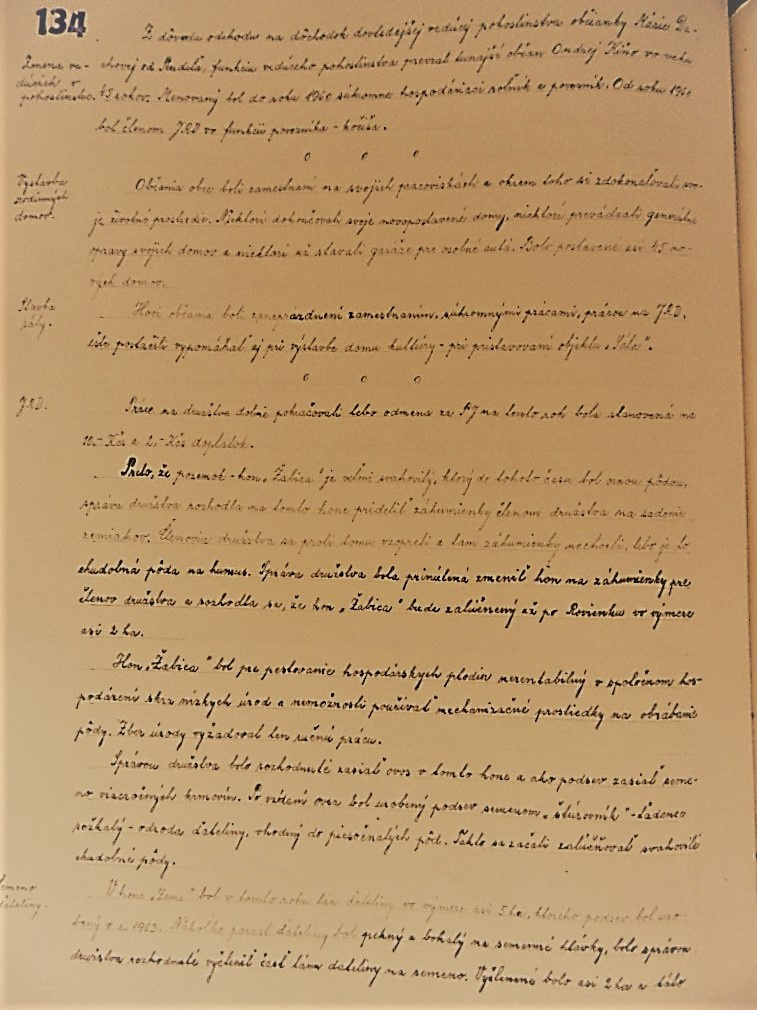 134
Z dôvodu odchodu na dôchodok dovtedajšej vedúcej pohostinstva občianky Márie
Zmena ve-
dúcich v
pohostinstve.
od Andela, funkciu vedúceho pohostinstva prevzal tunajší občan Ondrej vo veku
45 rokov. Menovaný bol do roku 1960 súkromne hospodáriaci roľník a povozník. Od roku 1960
bol členom JRD vo funkcii povozníka - kočiša.
o o o
Výstavba
rodinných
domov.
Občania obce boli zamestnaní na svojich pracoviskách a okrem toho si zdokonaľovali svo-
je životné prostredie. Niektorí dokončovali svoje novopostavené domy, niektorí prevádzali generálne
opravy svojich domov a niektorí už stavali garáže pre osobné autá. Bolo postavené asi 45 no-
vých domov.
Stavba
sály.
Hoci občania boli zaneprázdnení zamestnaním, súkromnými prácami, prácou na JRD,
ešte postačili vypomáhať aj pri výstavbe domu kultúry - pri pristavovaní objektu „Sála“.
o o o
JRD.
Práce na družstve dobre pokračovali lebo odmena za PJ na tento rok bola stanovená na
10.- Kčs a 2.- Kčs doplatok.
Preto, že pozemok - hon „Žabica“ je veľmi svahovitý, ktorý do tohoto času bol ornou pôdou,
správa družstva rozhodla na tomto hone prideliť záhumienky členom družstva na sadenie
zemiakov. Členovia družstva sa proti tomu vzopreli a tam záhumienky nechceli, lebo je to
chudobná pôda na humus. Správa družstva bola prinútená zmeniť hon na záhumienky pre
členov družstva a rozhodla sa, že hon „Žabica“ bude zalúčnený až po Rovienku vo výmere
asi 2 ha.
Hon „Žabica“ bol pre pestovanie hospodárskych plodín nerentabilný v spoločnom hos-
podárení skrz nízkych úrod a nemožnosti používať mechanizačné prostriedky na obrábanie
pôdy. Zber úrody vyžadoval len ručnú prácu.
Správou družstva bolo rozhodnuté zasiať ovos v tomto hone a ako podsev zasiať
viacročných krmovín. Po ovsa bol urobený podsev semenom „štúrovník“ - ľadenec
rožkatý - odroda ďateliny, vhodný do piesočnatých pôd. Takto sa začali zalúčňovať svahovité
chudobné pôdy.
Semeno
ďateliny.
V hone „Zeme“ bol v tomto roku lán ďateliny vo výmere asi 5 ha, ktorého podsev bol uro-
bený v r. 1983. Nakoľko porast ďateliny bol pekný a bohatý na semenné hlávky, bolo správou
družstva rozhodnuté vyčleniť časť lánu ďateliny na semeno. Vyčlenené bolo asi 2 ha a táto